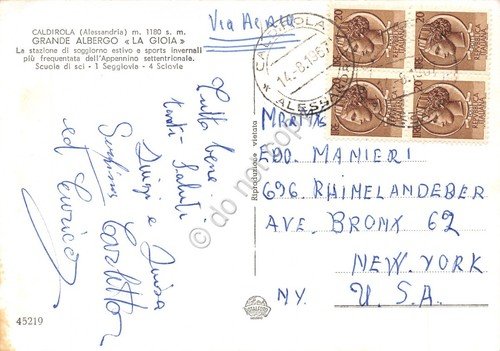 CALDIROLA (Alessandria) m. 1180 s. m.
GRANDE ALBERGO «LA GIOIA»
La stazione di soggiorno estivo e sports invernali
più frequentata dell'Appennino settentrionale.
Scuola di sci - 1 Seggiovia - 4 Sciovie
Via Aerea
CALDIROLA
14.8.1967
ALESSA
20
20
Tutto bene
tanti saluti
Luigi e Luisa
Carletto
ed Enrico
45219
Riproduzione vietata
do not copy
EDO. MANIERI
696. RHINELANDEBER
AVE. BRONX 62
NEW. YORK
N.Y. U. S. A.